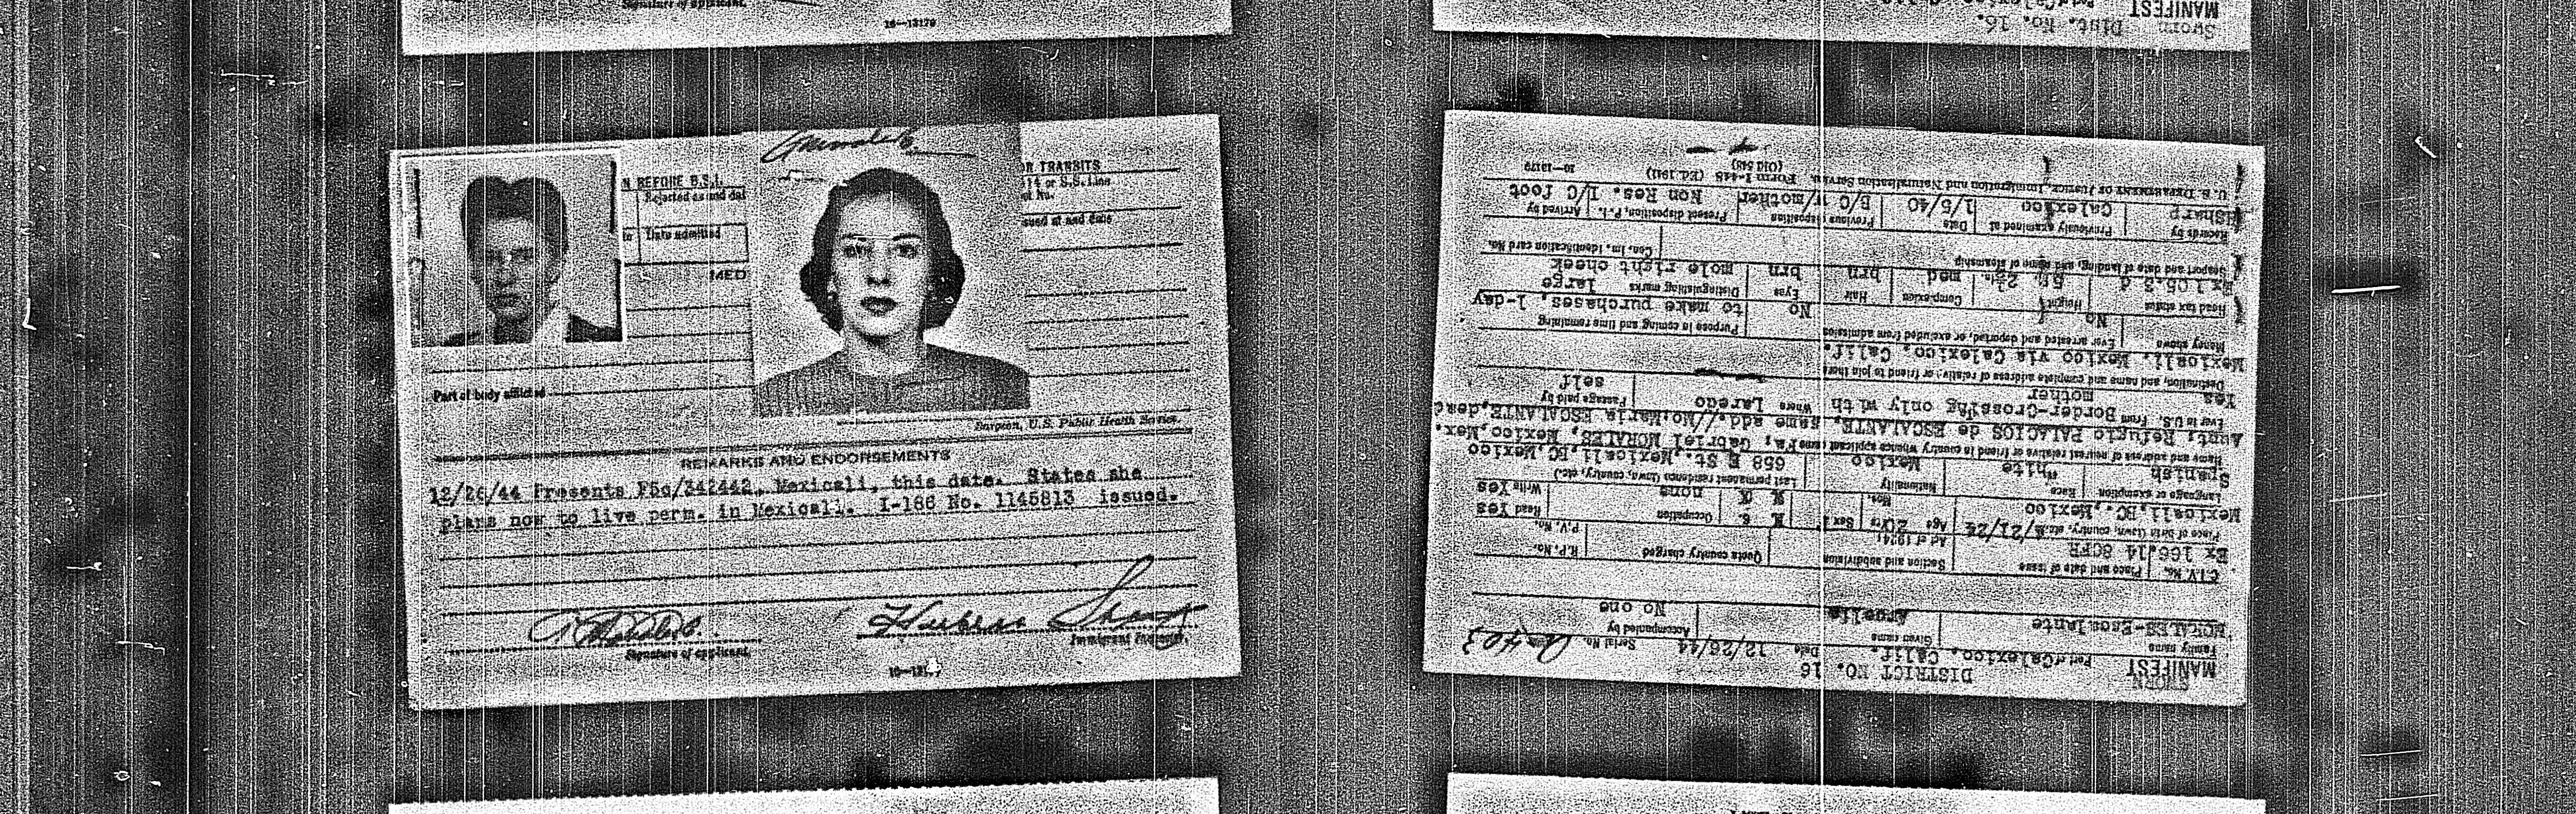 Signature of applicant.
16—13179
MANIFEST
Dist. No. 16.
Sworn
N BEFORE B.S.I.
OR TRANSITS
Date admitted
MED
Part of body afflicted
Surgeon, U.S. Public Health Service.
REMARKS AND ENDORSEMENTS
12/26/44 Presents F5c/342442, Mexicali, this date. States she
plans now to live perm. in Mexicali. I-186 No. 1145813 issued.
Signature of applicant.
Immigrant Inspector.
SWORN
DISTRICT NO. 16
MANIFEST
Port of Calexico, Calif. Date 12/26/44 Serial No.
Family name Given name Accompanied by
MORALES-Escalante Amelia No one
C.I.V. No. Place and date of issue Section and subdivision Act of 1924: Quota country charged R.P. No.
Ex 166.14 8CFR
Place of birth (town, country, etc.) Age 20 Yrs. Mos. Sex Occupation Read Yes P.V. No.
Mexicali, BC. Mexico none Write Yes
Language or exemption Race Nationality Last permanent residence (town, country, etc.)
Spanish White Mexico 658 E St. Mexicali, BC, Mexico
Name and address of nearest relative or friend in country whence applicant came Fa; Gabriel MORALES, Mexico, Mex.
Aunt; Refugio PALACIOS de ESCALANTE, same add.//Mo. Maria ESCALANTE, decd
Ever in U.S. From Border-Crossing only with Where Laredo Passage paid by
Yes mother self
Destination, and name and complete address of relative or friend to join there
Mexicali, Mexico via Calexico, Calif.
Money shown Ever arrested and deported, or excluded from admission Purpose in coming and time remaining
No No to make purchases, 1-day
Head tax status Height Complexion Hair Eyes Distinguishing marks large
Ex 105.3 d 5ft 2½in. med brn brn mole right cheek
Seaport and date of landing, and name of steamship Con. Im. Identification card No.
Records by Previously examined at Date Previous disposition Present disposition, P.I. Arrived by
HSharp Calexico 1/5/40 B/C w/mother Non Res. I/C foot
U. S. DEPARTMENT OF JUSTICE, Immigration and Naturalization Service. Form I-448 (Ed. 1941) 16—13179
(Old 548)